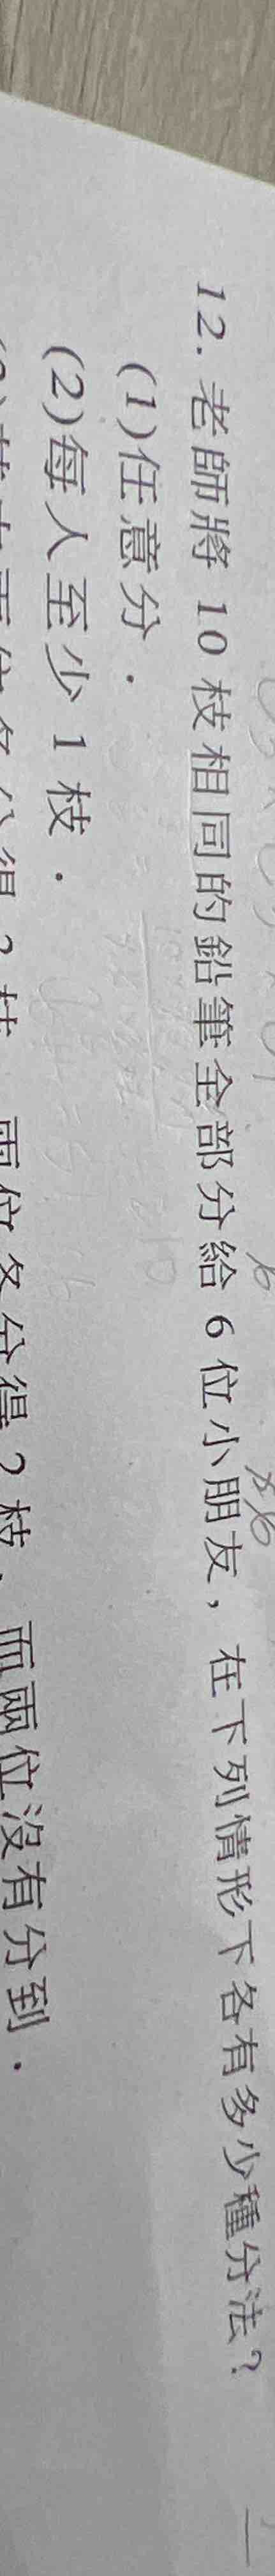 12. 老師將 10 枝相同的鉛筆全部分給 6 位小朋友，在下列情形下各有多少種分法？
(1)任意分．
(2)每人至少 1 枝．
兩位各分得 2 枝、而兩位沒有分到．